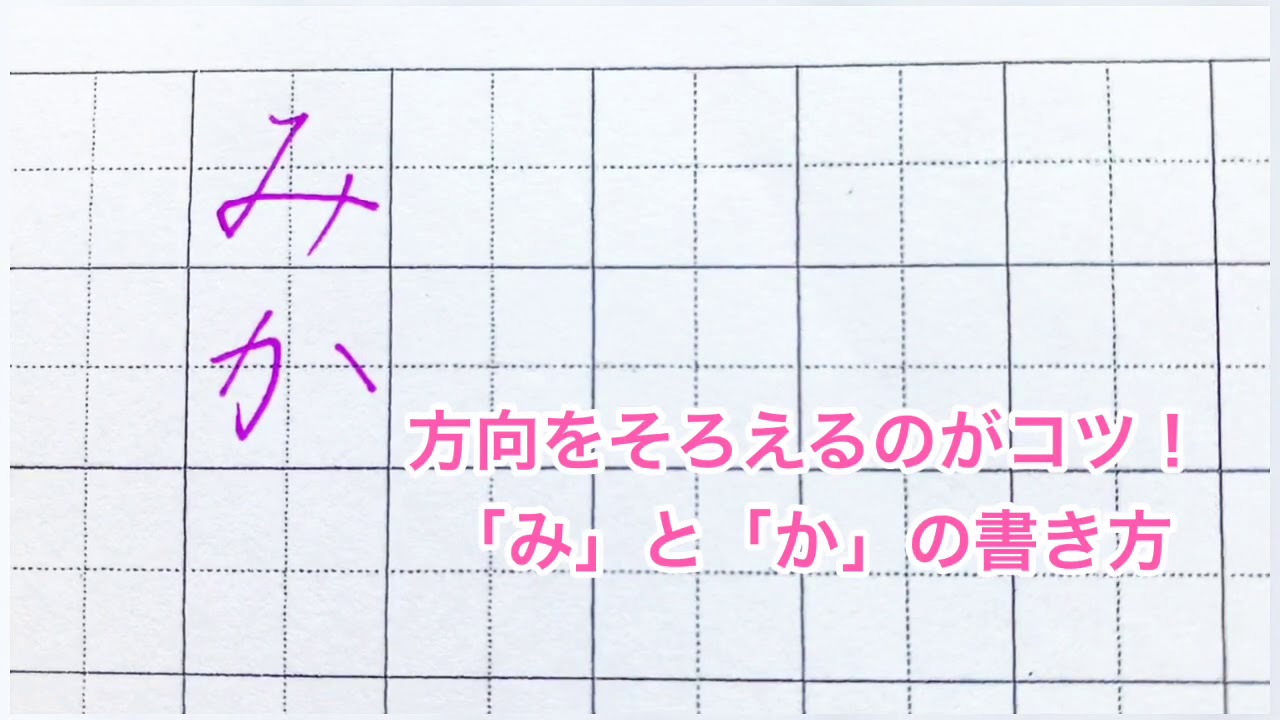 み
か
方向をそろえるのがコツ！
「み」と「か」の書き方